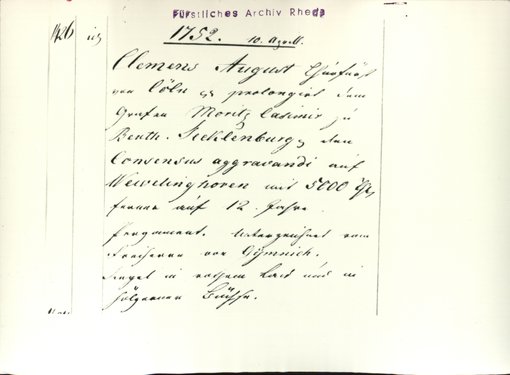 Fürstliches Archiv Rheda
1752. 10. Aprill.
Clemens August Churfürst
von Cöln prolongirt dem
Grafen Moritz Casimir zu
Benth. Tecklenburg, den
Consensus aggravandi auf
Wewelinghoven mit 5000
ferner auf 12 Jahre.
Pergament. Unterzeichnet vom
Freiherrn von Gymnich.
Siegel in rothem Lack und in
hölzerner Büchse.